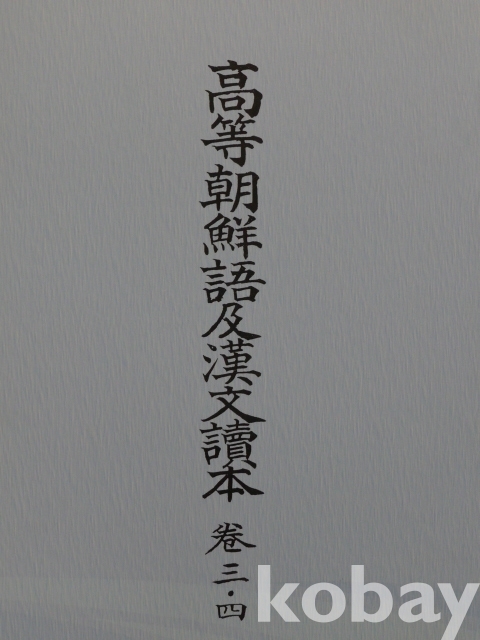 高等朝鮮語及漢文讀本 卷三·四
kobay